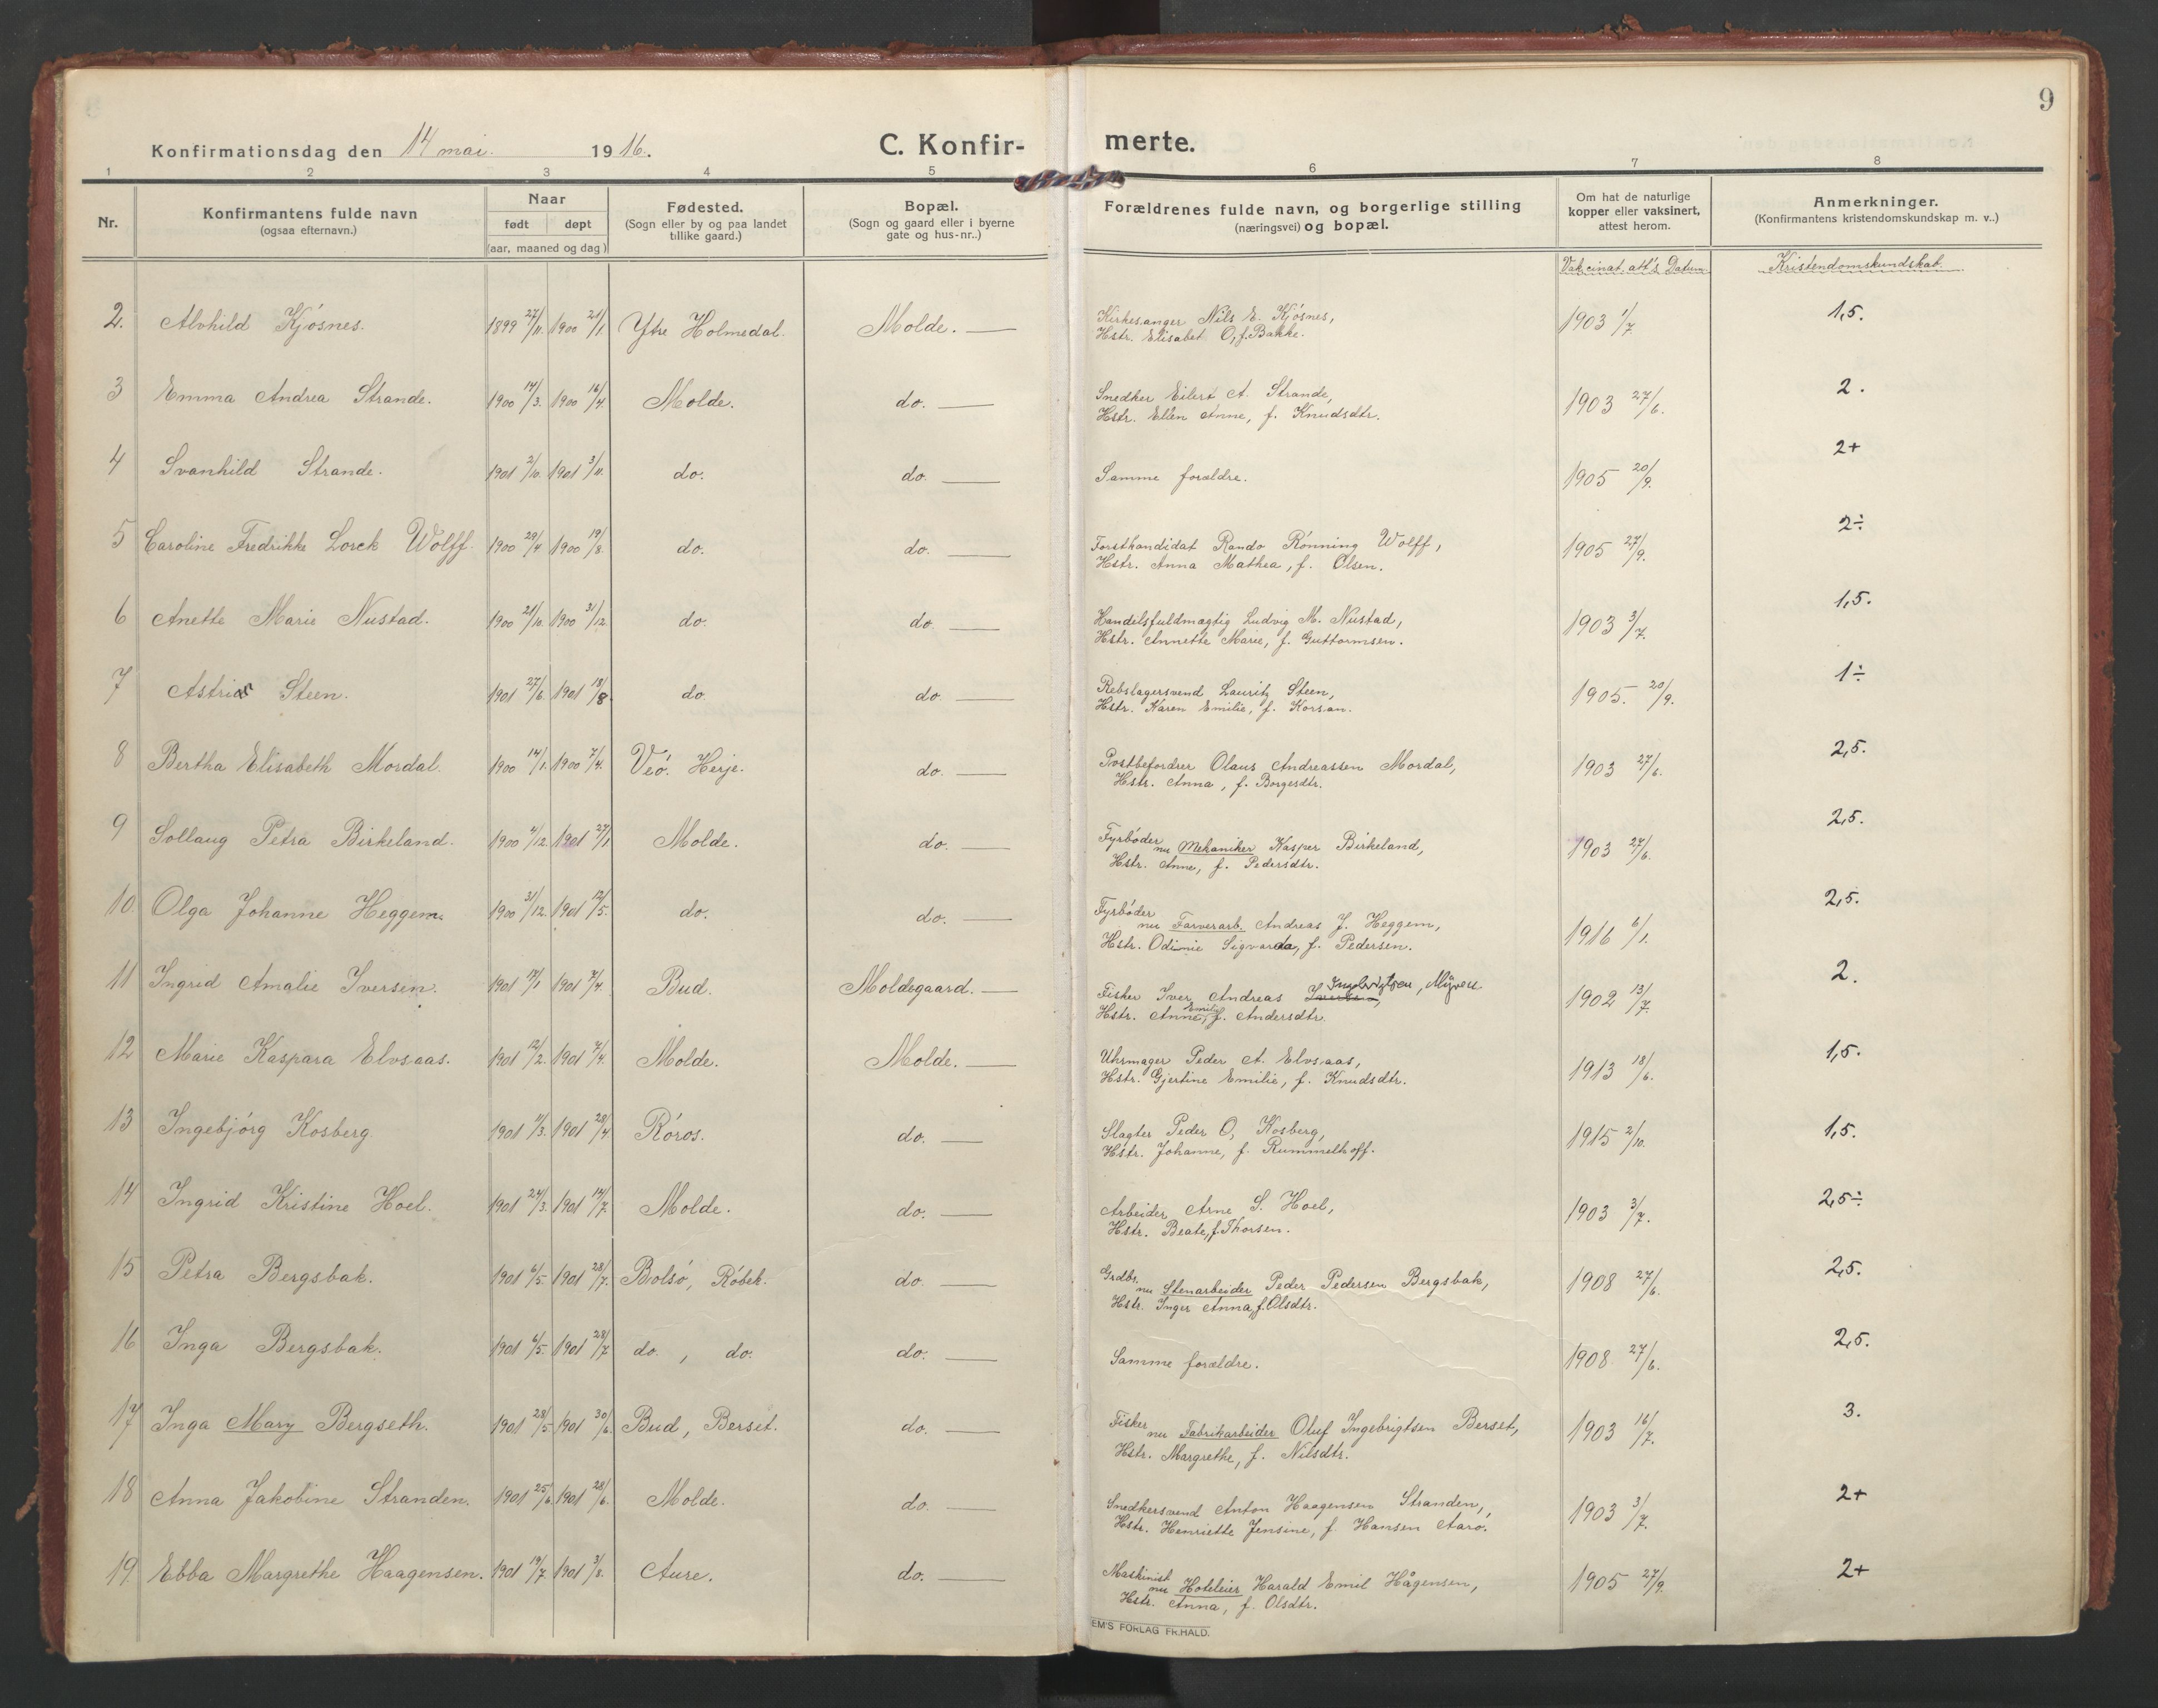 9
Konfirmationsdag den 14 mai. 1916.
C. Konfir- merte.
1 2 3 4 5 6 7 8
Nr.
Konfirmantens fulde navn
(ogsaa efternavn.)
Naar
født døpt
(aar, maaned og dag)
Fødested.
(Sogn eller by og paa landet
tillike gaard.)
Bopæl.
(Sogn og gaard eller i byerne
gate og hus-nr..)
Forældrenes fulde navn, og borgerlige stilling
(næringsvei) og bopæl.
Om hat de naturlige
kopper eller vaksinert,
attest herom.
Anmerkninger.
(Konfirmantens kristendomskundskap m. v..)
Vakcinat. att's Datum
Kristendomskundskab.
2. Alvhild Kjósnes. 1899 27/11. 1900 21/1. Ytre Holmedal. Molde. — Kirkesanger Nils E. Kjósnes, 1903 1/7. 1,5.
Hstr. Elisabet O, f. Bakke.
3 Emma Andrea Strande. 1900 14/3. 1900 16/4. Molde. do. — Snedker Eilert A. Strande, 1903 27/6. 2.
Hstr. Ellen Anne, f. Knudsdtr.
4 Svanhild Strande. 1901 2/10. 1901 3/11. do. do. — Samme forældre. 1905 20/9. 2+
5 Caroline Fredrikke Lorck Wolff. 1900 29/4 1900 19/8. do. do. — Forstkandidat Rando Rónning Wolff, 1905 27/9. 2÷
Hstr. Anna Mathea, f. Olsen.
6 Anette Marie Nustad. 1900 21/10. 1900 31/12. do. do. — Handelsfuldmægtig Ludvig M. Nustad, 1903 3/7. 1,5.
Hstr. Annette Marie, f. Guttormsen.
7 Astri Steen. 1901 27/6. 1901 18/8. do. do. — Rebslagersvend Lauritz Steen, 1905. 20/9. 1÷
Hstr. Karen Emilie, f. Korsan.
8 Bertha Elisabeth Mordal. 1900 14/1. 1900 7/4. Veó. Herje. do. — Postbefordrer Olaus Andreassen Mordal, 1903 27/6. 2,5.
Hstr. Anna, f. Borgesdtr.
9 Sollaug Petra Birkeland. 1900 4/12. 1901 27/1 Molde. do. — Fyrbóder
nu Mekaniker Kasper Birkeland, 1903 27/6. 2,5.
Hstr. Anne, f. Pedersdtr.
10. Olga Johanne Heggem. 1900 31/12. 1901 12/5. do. do. — Fyrbóder
nu Farverarb. Andreas J. Heggem, 1916 6/1. 2,5.
Hstr. Odinie Sigvarda, f. Pedersen.
11 Ingrid Amalie Iversen. 1901 17/1 1901 7/4. Bud. Moldegaard. — Fisker Iver Andreas Ingebrigtsen, Myren 1902 13/7. 2.
Hstr. Anne Emilie, f. Andersdtr.
12 Marie Kaspara Elvsaas. 1901 12/2. 1901 7/4. Molde. Molde. — Uhrmager Peder A. Elvsaas, 1913 18/6. 1,5.
Hstr. Gjertine Emilie, f. Knudsdtr.
13 Ingebjórg Kosberg. 1901 11/3. 1901 28/4 Róros. do. — Slagter Peder O. Kosberg, 1915 2/10. 1,5.
Hstr. Johanne, f. Rummelhoff.
14 Ingrid Kristine Hoel. 1901 24/3. 1901 14/7. Molde. do. — Arbeider Arne S. Hoel, 1903 3/7. 2,5÷
Hstr. Beate, f. Thorsen.
15 Petra Bergsbak. 1901 6/5. 1901 28/7. Bolsó, Róbek. do. — Grdbr.
nu Stenarbeider Peder Pedersen Bergsbak, 1908 27/6. 2,5.
Hstr. Inger Anna, f. Olsdtr.
16 Inga Bergsbak. 1901 6/5. 1901 28/7 do., do. do. — Samme forældre. 1908 27/6. 2,5.
17 Inga Mary Bergseth. 1901 28/5. 1901 30/6. Bud, Berset. do. — Fisker
nu Fabrikarbeider Oluf Ingebrigtsen Berset, 1903 16/7. 3.
Hstr. Margrethe, f. Nilsdtr.
18 Anna Jakobine Stranden. 1901 25/6. 1901 28/6. Molde. do. — Snedkersvend Anton Haagensen Stranden, 1903 3/7. 2+
Hstr. Henriette Jensine, f. Hansen Aaró.
19. Ebba Margrethe Haagensen. 1901 19/7 1901 3/8. Aure. do. — Maskinist
nu Hoteleier Harald Emil Hågensen, 1905 27/9. 2+
Hstr. Anna, f. Olsdtr.
EM'S FORLAG FR.HALD.